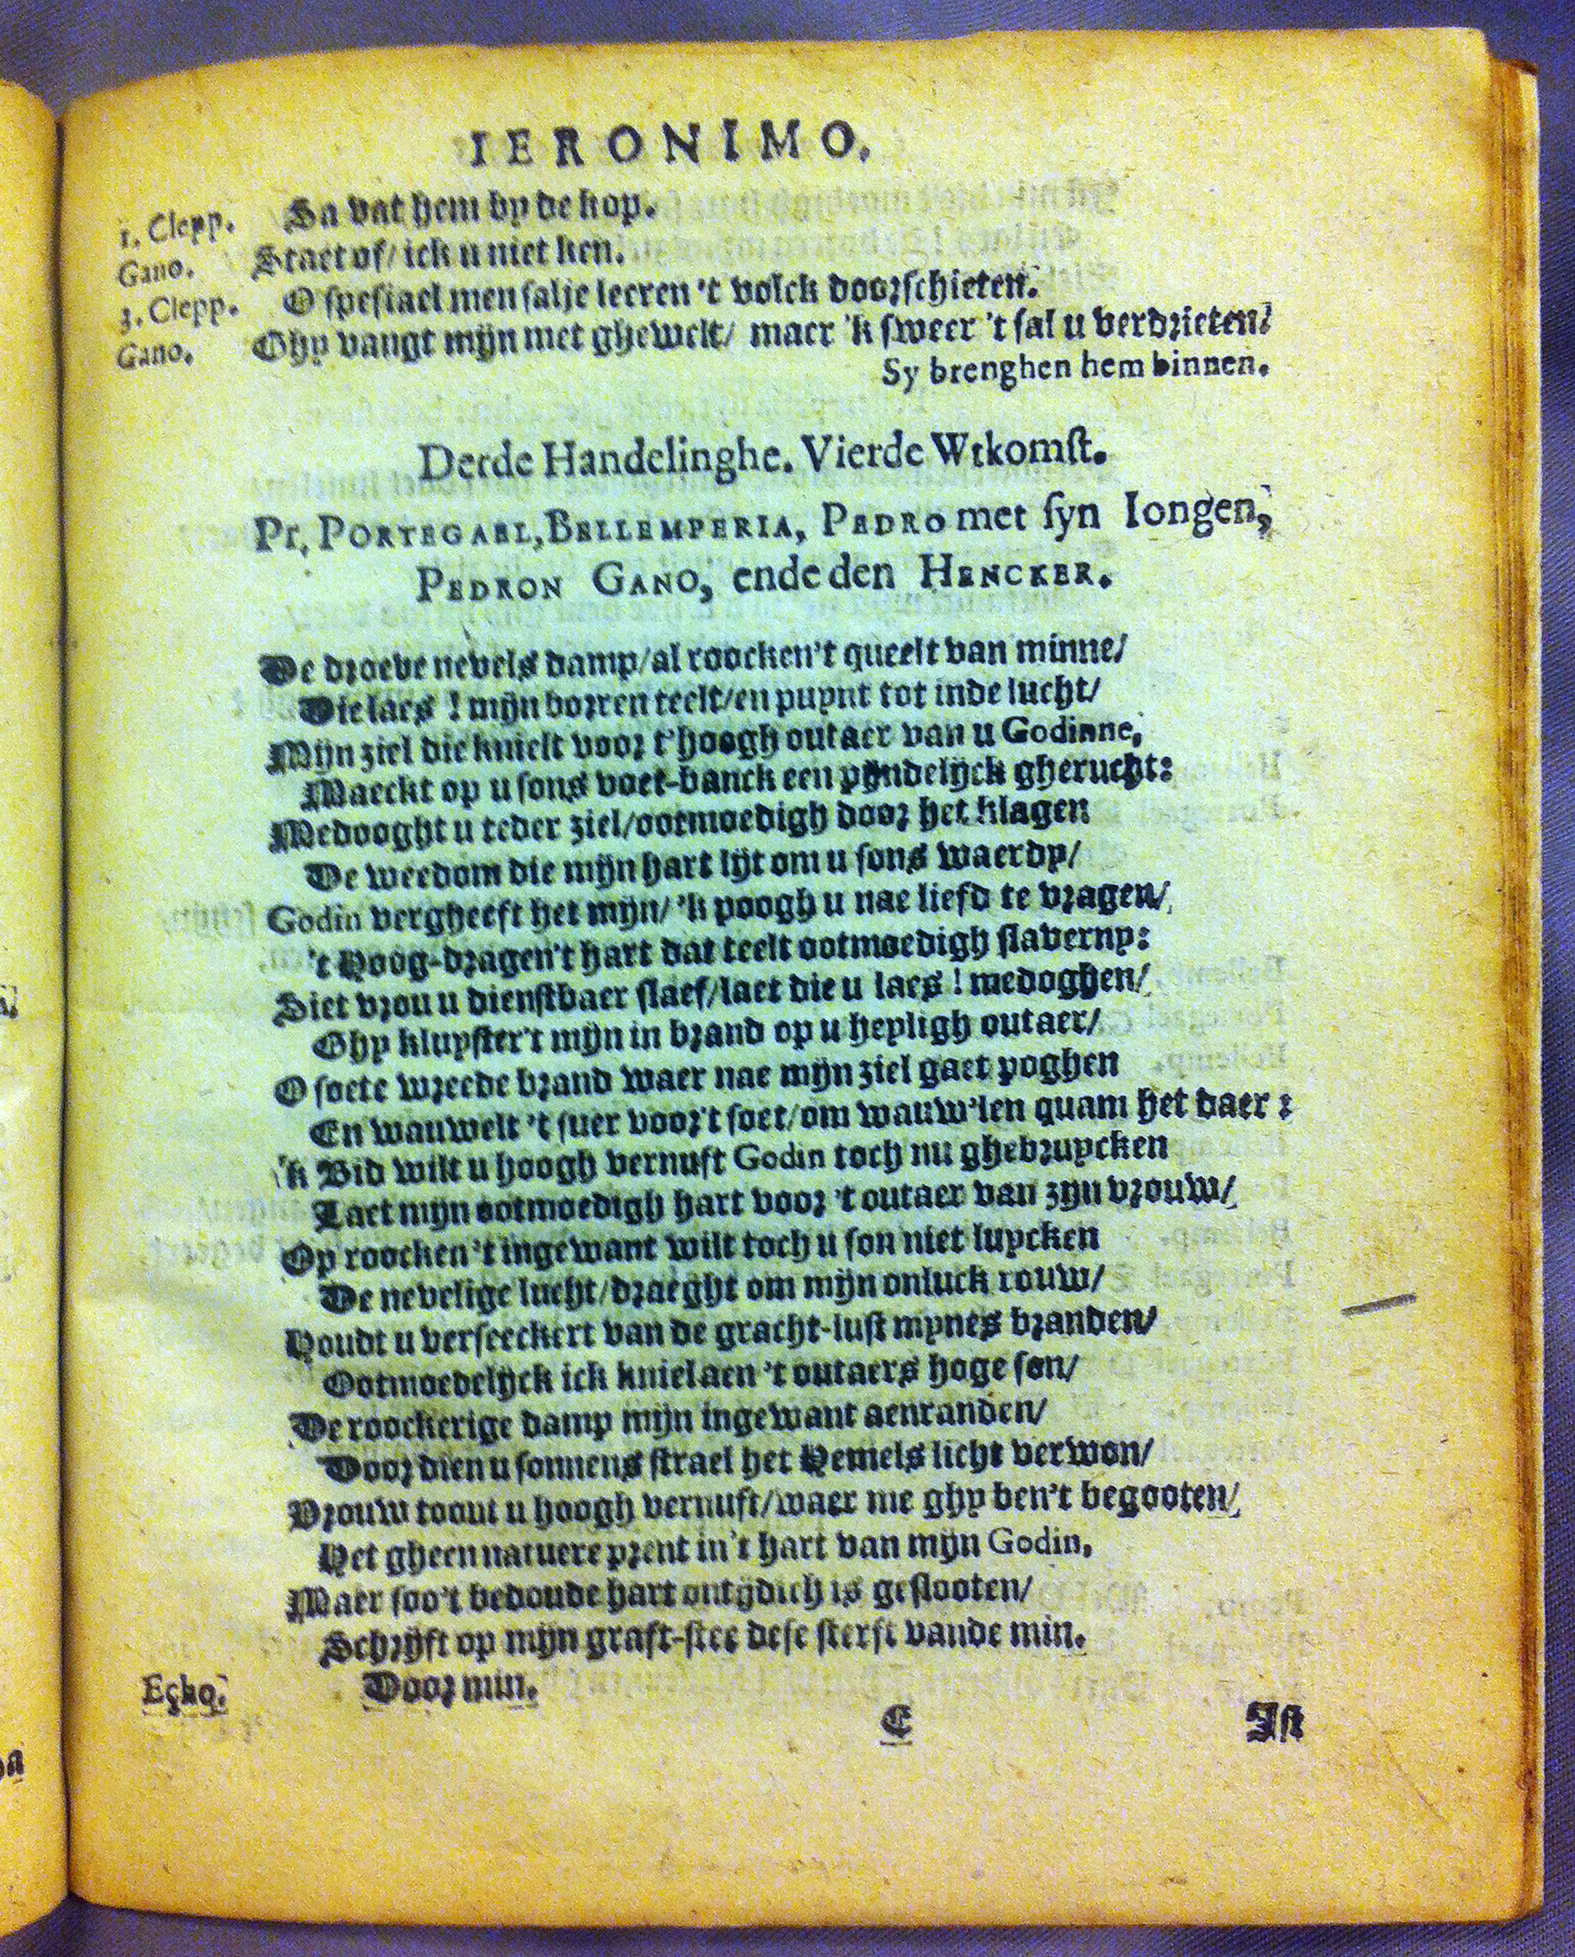 IERONIMO.
1. Clepp. Sa vat hem by de kop.
Gano. Staet of/ ick u niet ken.
3. Clepp. O spesiael men salje leeren 't volck doorschieten.
Gano. Ghy vangt mijn met ghewelt/ maer 'k sweer 't sal u verdrieten.
Sy brenghen hem binnen.
Derde Handelinghe. Vierde Wtkomst.
Pr. PORTEGAEL, BELLEMPERIA, PEDRO met syn Iongen,
PEDRON GANO, ende den HENCKER.
De droeve nevels damp/al roocken't queelt van minne/
Die laes ! mijn borren teelt/en puynt tot inde lucht/
Mijn ziel die knielt voor t'hoogh outaer van u Godinne,
Maeckt op u sons voet-banck een pijndelijck gherucht:
Medooght u teder ziel/ootmoedigh door het klagen
De weedom die mijn hart lijt om u sons waerdy/
Godin vergheeft het mijn/ 'k poogh u nae liefd te vragen/
't Hoog-dragen't hart dat teelt ootmoedigh slaverny:
Siet vrou u dienstbaer slaef/laet die u laes ! medoghen/
Ghy kluyster't mijn in brand op u heyligh outaer/
O soete wreede brand waer nae mijn ziel gaet poghen
En wauwelt 't suer voor't soet/om wauw'len quam het daer :
'k Bid wilt u hoogh vernuft Godin toch nu ghebruycken
Laet mijn ootmoedigh hart voor 't outaer van zyn vrouw/
Op roocken't ingewant wilt toch u son niet luycken
De nevelige lucht/draeght om mijn onluck rouw/
Houdt u verseeckert van de gracht-lust mynes branden/
Ootmoedelijck ick kniel aen 't outaers hoge son/
De roockerige damp mijn ingewant aenranden/
Door dien u sonnens strael het Hemels licht verwon/
Vrouw toont u hoogh vernuft/waer me ghy ben't begooten/
Het gheen natuere prent in't hart van mijn Godin,
Maer soo't bedoude hart ontijdich is geslooten/
Schrijft op mijn graft-stee dese sterft vande min.
Echo. Door min.
C Ist